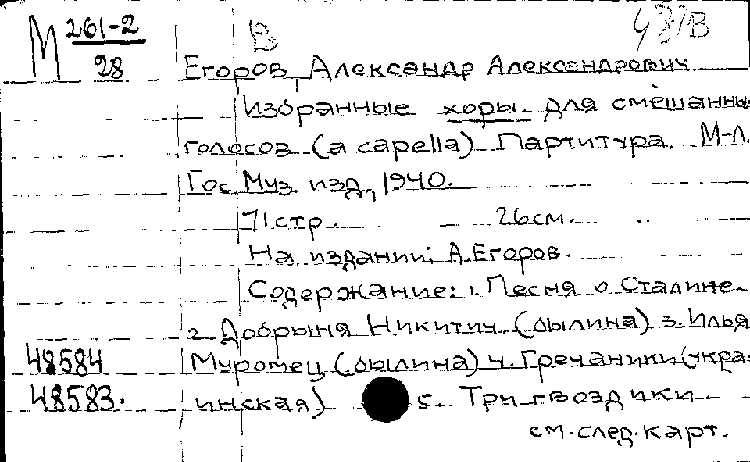 М 261-2 В 431В
28 Егоров, Александр Александрович
Избранные хоры для смешанны
голосов (a capella) Партитура. М-Л.
Гос. Муз. изд, 1940.
71 стр. 26 см.
На издании: А. Егоров.
Содержание: 1. Песня о Сталине.
2. Добрыня Никитич (былина) 3. Илья
48584 Муромец (былина) 4. Гречаники (укра-
48583. инская) 5. Три гвоздики
см. след. карт.